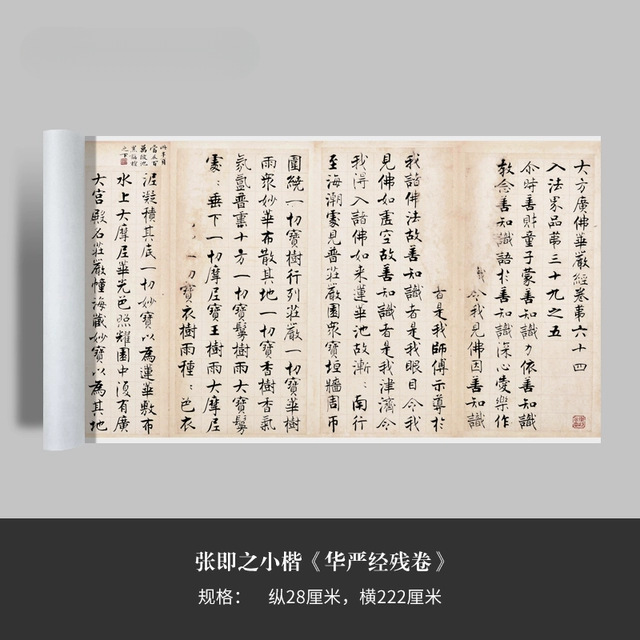 大方廣佛華嚴經卷第六十四
入法界品第三十九之五
尒時善財童子蒙善知識力依善知識
教念善知識語於善知識深心愛樂作
令我見佛因善知識
者是我師傅示導於
我諸佛法故善知識者是我眼目令我
見佛如虛空故善知識者是我津濟令
我得入諸佛如來蓮華池故漸：南行
至海潮處見普莊嚴園眾寶垣牆周帀
圍繞一切寶樹行列莊嚴一切寶華樹
雨眾妙華布散其地一切寶香樹香氣
氛氳普熏十方一切寶鬘樹雨大寶鬘
處：垂下一切摩尼寶王樹雨大摩尼
一切寶衣樹雨種：色衣
泥凝積其底一切妙寶以為蓮華敷布
水上大摩尼華光色照耀園中復有廣
大宮殿名莊嚴幢海藏妙寶以為其地
张即之小楷《华严经残卷》
规格： 纵28厘米，横222厘米